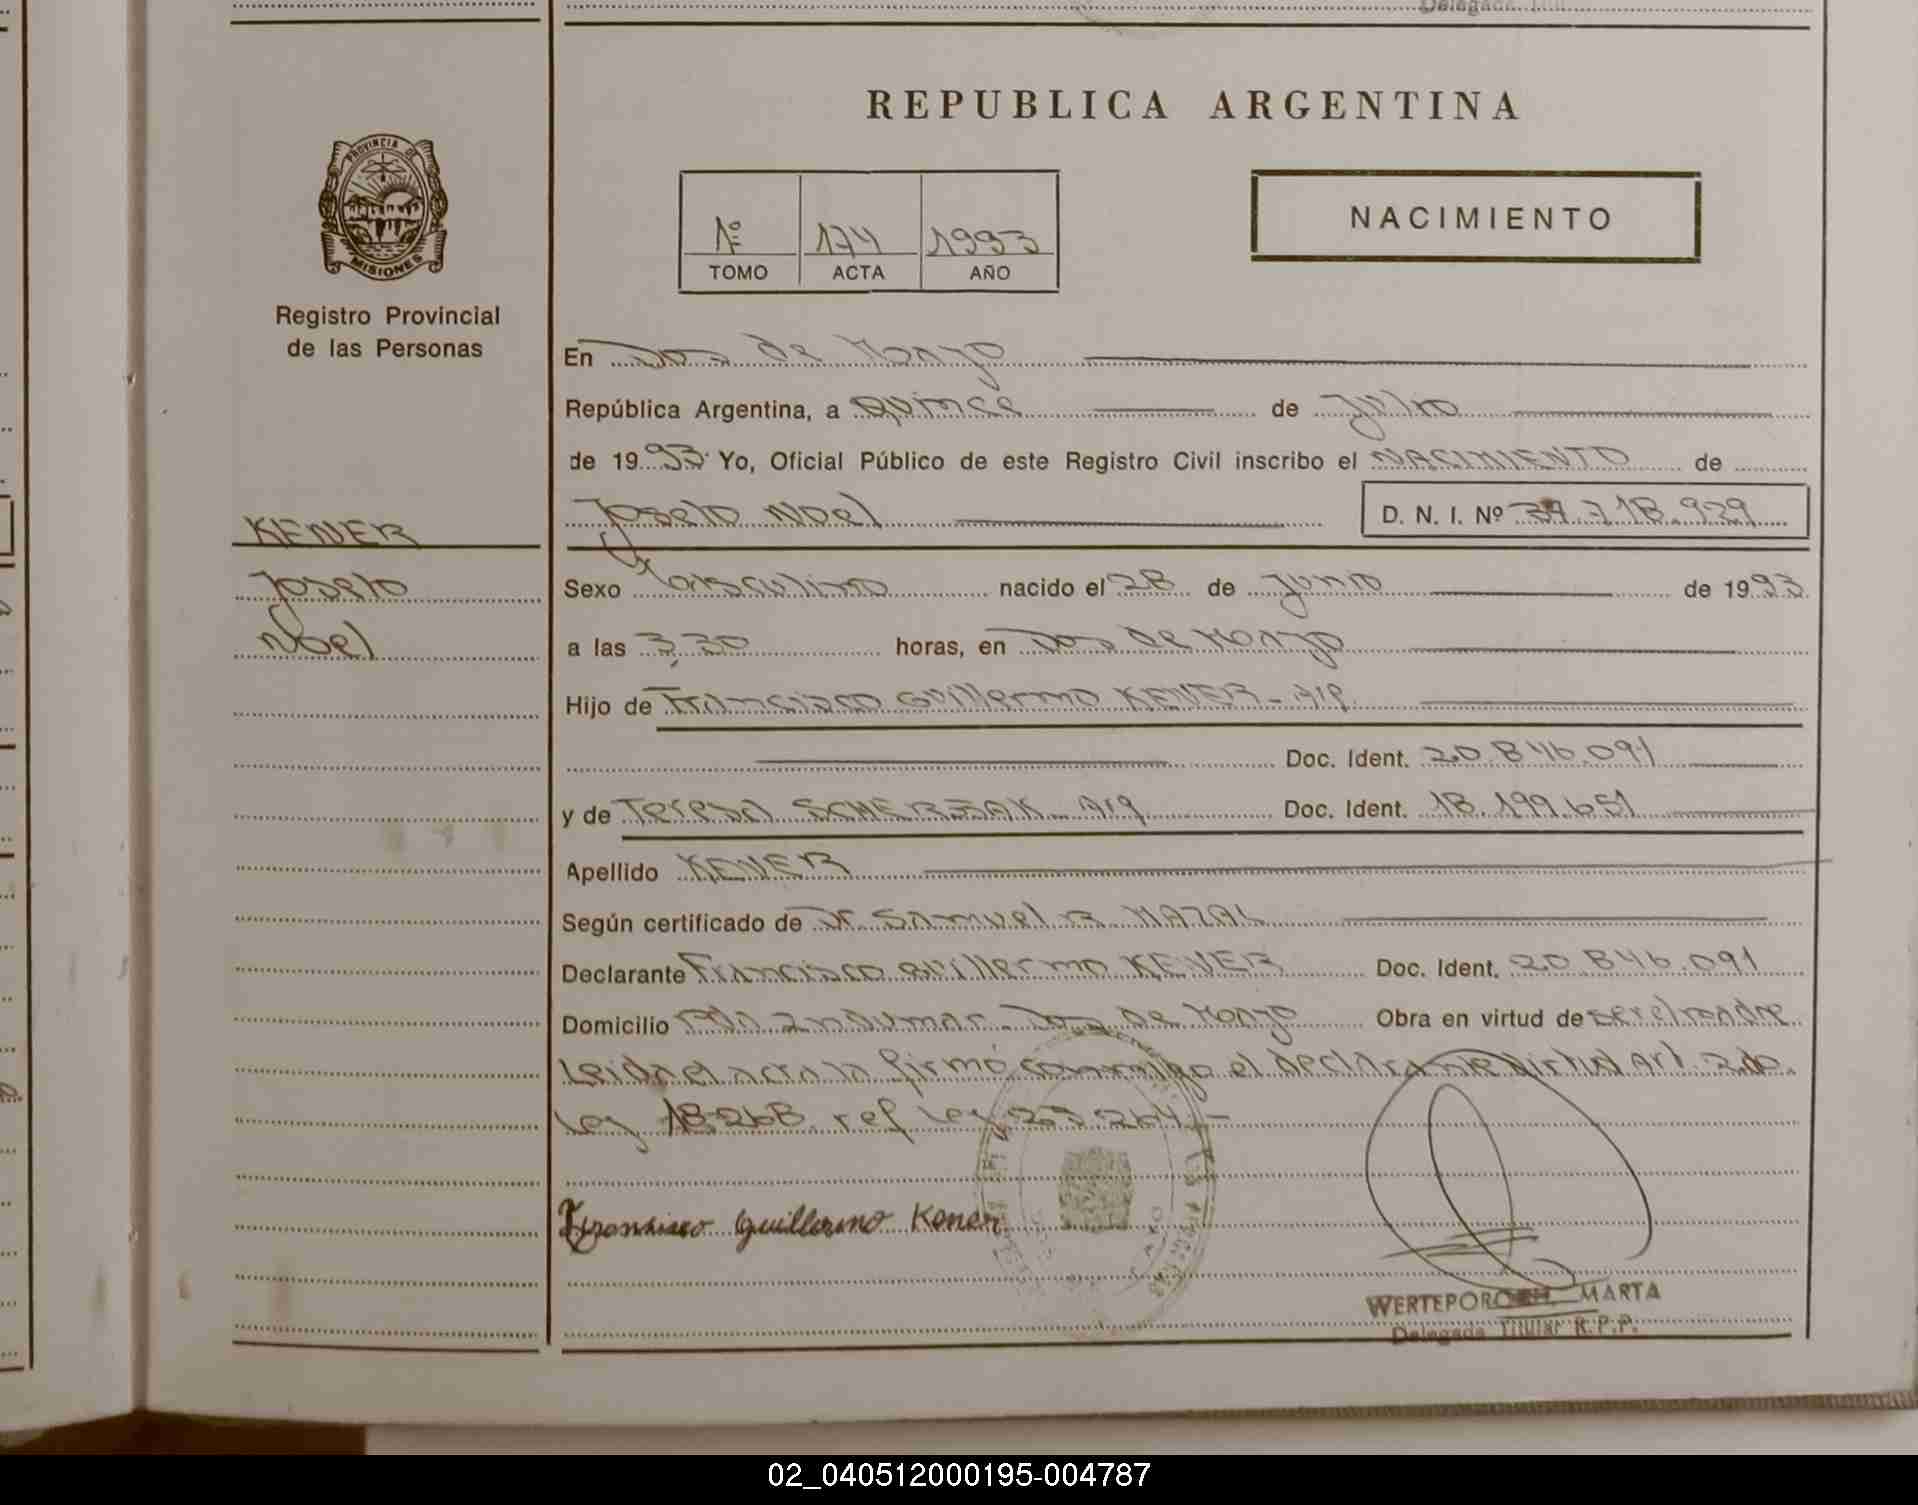 REPUBLICA ARGENTINA
PROVINCIA DE
MISIONES
Registro Provincial
de las Personas
Nº 174 1993
TOMO ACTA AÑO
NACIMIENTO
En Dos de Mayo
República Argentina, a quince de Julio
de 1993 Yo, Oficial Público de este Registro Civil inscribo el NACIMIENTO de
Joselo Noel D. N. I. Nº 37.318.929
KENER
Joselo
Noel
Sexo Masculino nacido el 28 de Junio de 1993
a las 3,30 horas, en Dos de Mayo
Hijo de Francisco Guillermo KENER - Arg.
Doc. Ident. 20.846.091
y de Teresa Arg Doc. Ident. 18.199.651
Apellido KENER
Según certificado de Dr. Samuel R. MAZAL
Declarante Francisco Guillermo KENER Doc. Ident. 20.846.091
Domicilio Dos de Mayo Obra en virtud de ser el padre
Leida el acta la firmó conmigo el declarante virtud Art. 2do
Ley 18.268 ref Ley 23.264.-
Francisco Guillermo Kener
MARTA
Delegada Titular R.P.P.
02_040512000195-004787